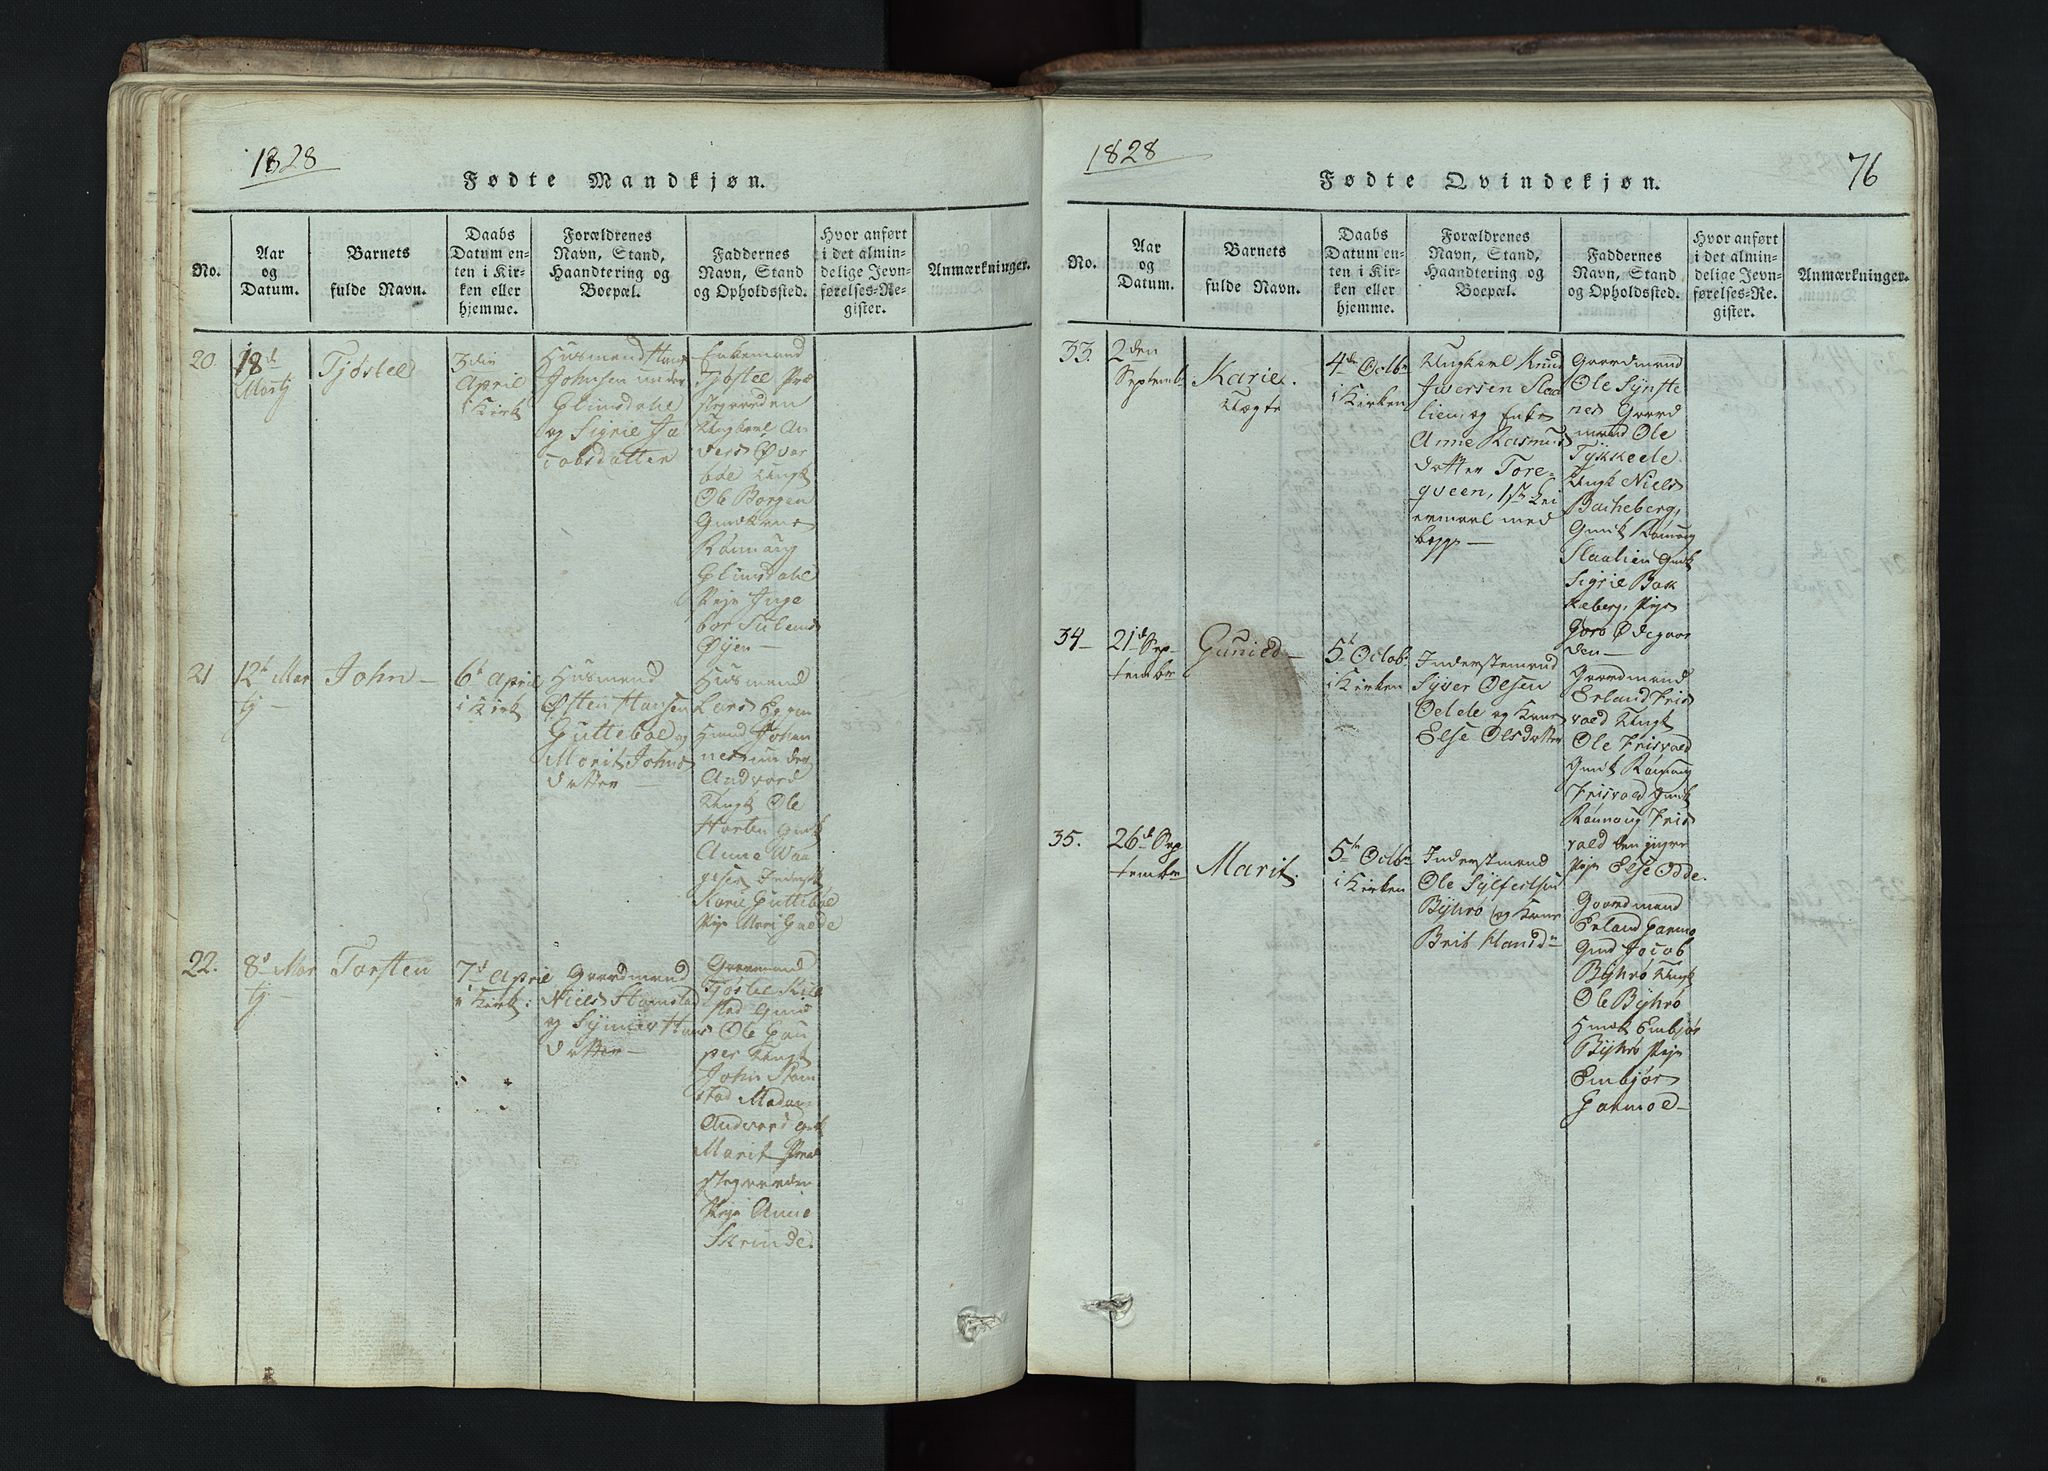 1828
Fødte Mandkjøn.
No.
Aar
og
Datum.
Barnets
fulde Navn.
Daabs
Datum en-
ten i Kir-
ken eller
hjemme.
Forældrenes
Navn, Stand,
Haandtering og
Boepæl.
Faddernes
Navn, Stand
og Opholdssted.
Hvor anført
i det almin-
delige Jevn-
førelses-Re-
gister.
Anmærkninger.
20.
18d
Martj
Tjøstel
3die
April
i Kirk
Husmand Hans
Johnsen under
Glimsdahl
og Sigrie Ja
cobsdatter
Enkemand
Tjøstel Præ
stegaarden
Ungkarl An
ders Øvar
Ole Borgen
Rønnaug
Glimsdahl
Pige Inge
bor Sulem
Øyen—
21
12t Mar
tj—
John—
6t April
i Kirk
Husmand
Østen Hansen
Guttebøe og
Marit Johns
datter—
Husmand
Lars Eggen
Husmd Johan
nes under
Andvord
Ungk Ole
Harten Gmk
Anne Waa
Karie Guttebøe
Pige Mari Graade
22.
8d Mar
tj—
Torsten
7d April
i Kirk:
Gaardmand
Niels Stamstad
og Synnev Hans
datter—
Gaarmand
Tjøstel Kil
stad Gmd
Ole Gau
per Ungk
John Stam
stad Madam
Andvord Gmk
Marit Præ
stegaarden
Pige Anne
Skrinde.
1828
76
Fødte Qvindekjøn.
No.
Aar
og
Datum.
Barnets
fulde Navn.
Daabs
Datum en-
ten i Kir-
ken eller
hjemme.
Forældrenes
Navn, Stand,
Haandtering og
Boepæl.
Faddernes
Navn, Stand
og Opholdssted.
Hvor anført
i det almin-
delige Jevn-
førelses-Re-
gister.
Anmærkninger.
33.
2den
Septemb
Karie.
Uægte
4de Octbr
i Kirken
Ungkarl Knud
Iversen Slaa
lien, og Enke
Anne Rasmus
datter Tore-
qveen, 1ste Lei
ermaal med
begge—
Gaardmand
Ole Synste
nes Gaard
mand Ole
Tykkeele
Ungk Niels
Bacheberg,
Gmk Rønnaug
Slaalien Gmk
Sigrie Bak
keberg, Pige
Goro Ødegaar
den—
34—
21d Sep-
tember
Gunild—
5t Octob.
i Kirken
Inderstemand
Syver Olsen
Odde og Kone
Else Olsdatter
Gaardmand
Erland Fris
vold Ungk
Ole Frisvold
Gmk Rønnaug
Frisvold Gmk
Rønnaug Fris
vold den yngre
Pige Else Odde.
35.
26d Sep
tember
Marit.
5te Octbr
i Kirken
Inderstmand
Ole Sylfestsen
Byhrø og Kone
Brit Hansdr
Gaardmand
Erland Garmo
Gmd Jacob
Byhrø Ungk
Ole Byhrø
Hmk Embjør
Byhrø Pige
Embjør
Garmoe—